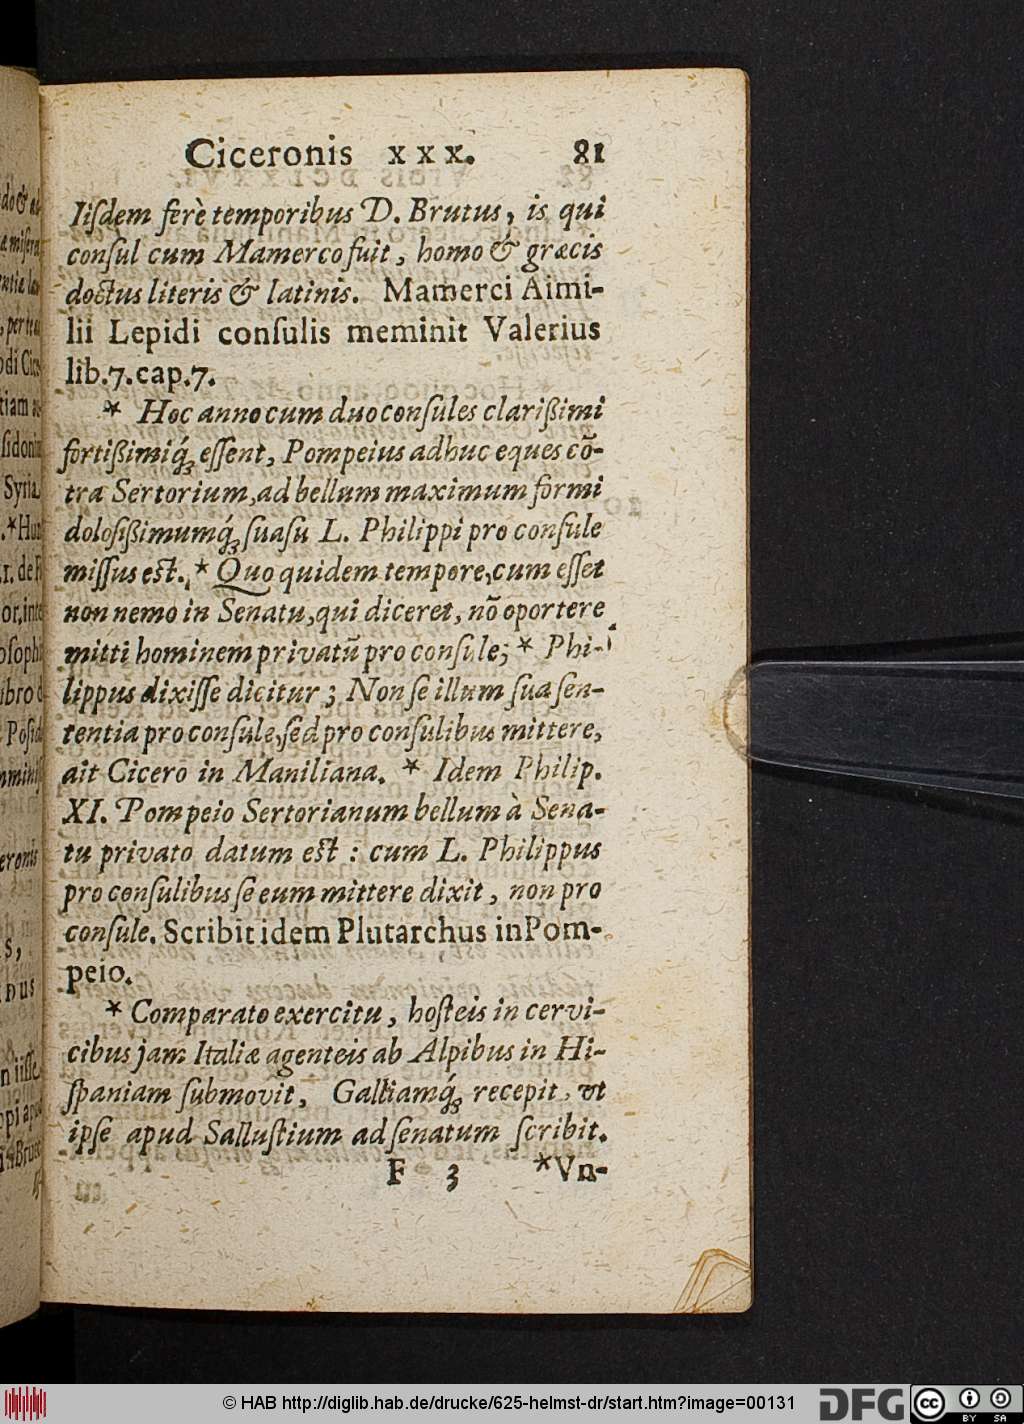 Ciceronis xxx. 81
Iiſdem ferè temporibus D. Brutus, is qui
conſul cum Mamerco fuit, homo & græcis
doctus literis & latinis. Mamerci Aimi-
lii Lepidi conſulis meminit Valerius
lib.7.cap.7.
* Hoc anno cum duo conſules clarißimi
fortißimiq́; eſſent, Pompeius adhuc eques cõ-
tra Sertorium, ad bellum maximum formi
doloſißimumq́; ſuaſu L. Philippi pro conſule
miſſus est. * Quo quidem tempore, cum eſſet
non nemo in Senatu, qui diceret, nõ oportere
mitti hominem privatũ pro conſule; * Phi-
lippus dixiſſe dicitur; Non ſe illum ſua ſen-
tentia pro conſule, ſed pro conſulibus mittere,
ait Cicero in Maniliana. * Idem Philip.
XI. Pompeio Sertorianum bellum à Sena-
tu privato datum est: cum L. Philippus
pro conſulibus ſe eum mittere dixit, non pro
conſule. Scribit idem Plutarchus in Pom-
peio.
* Comparato exercitu, hoſteis in cervi-
cibus jam Italiæ agenteis ab Alpibus in Hi-
ſpaniam ſubmovit, Galliamq́; recepit, ut
ipſe apud Salluſtium ad ſenatum ſcribit.
F 3 *Vn-
© HAB http://diglib.hab.de/drucke/625-helmst-dr/start.htm?image=00131
DFG
cc BY SA